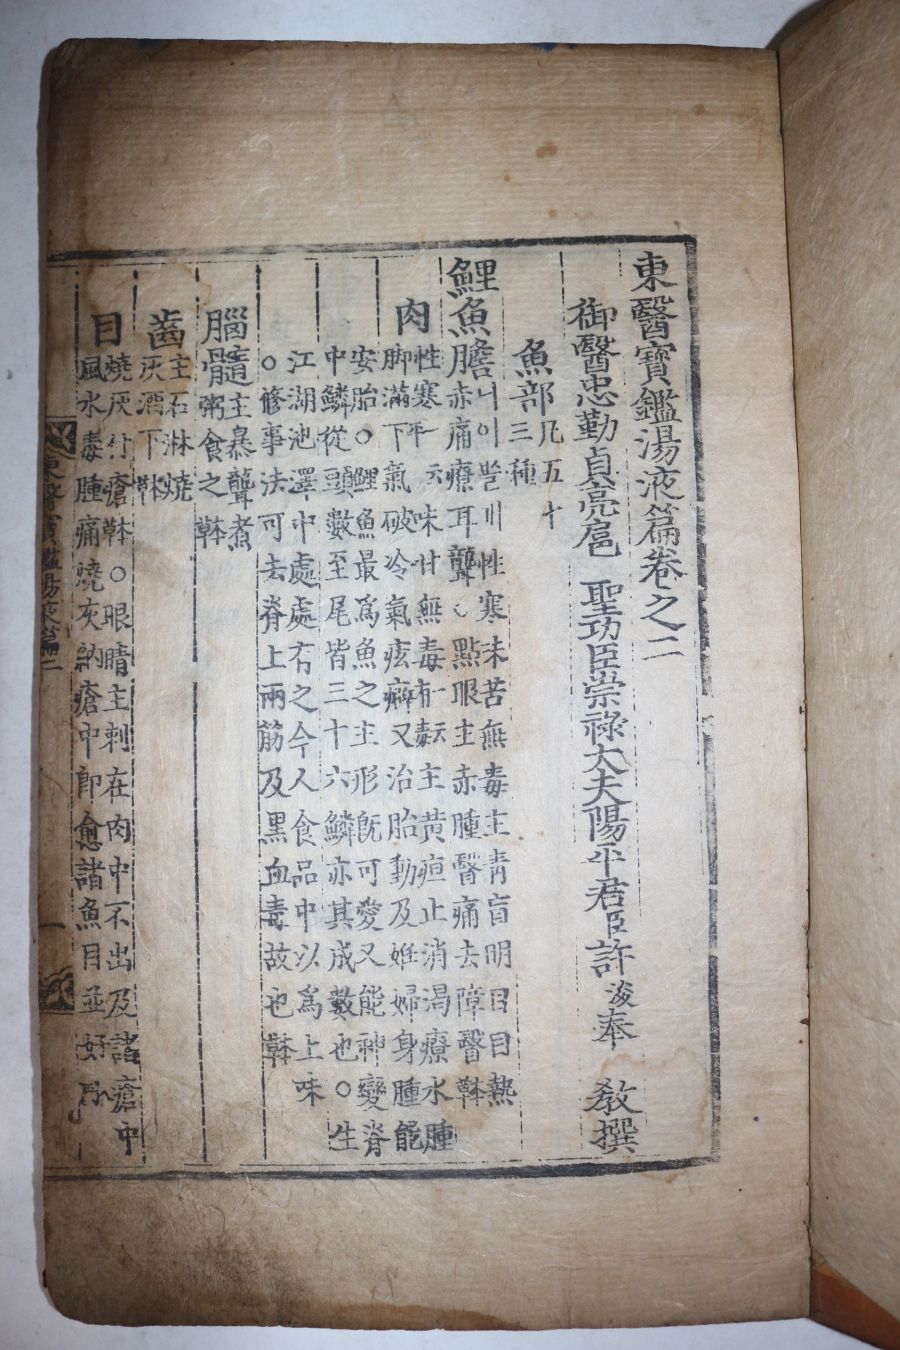 東醫寶鑑湯液篇卷之二
御醫忠勤貞亮扈 聖功臣崇祿大夫陽平君臣許浚奉 敎撰
魚部 凡五十
三種
鯉魚膽 니어쓸게 性寒味苦無毒主靑盲明目目熱
赤痛療耳聾〻點眼主赤腫翳痛去障翳夲
肉 性寒一云平味甘無毒有一云毒主黃疸止消渴療水腫
脚滿下氣破冷氣痃癖又治胎動及姙婦身腫能
安胎○鯉魚最爲魚之主形旣可愛又能神變脊
中鱗從頭數至尾皆三十六鱗亦其成數也○生
江湖池澤中處處有之今人食品中以爲上味
○修事法可去脊上兩筋及黑血毒故也夲
腦髓 主暴聾煮
粥食之夲
齒 主石淋燒
灰酒下夲
目 燒灰付瘡夲○眼睛主刺在肉中不出及諸瘡中
風水毒腫痛燒灰納瘡中卽愈諸魚目並好
東醫寶鑑湯液篇二
一